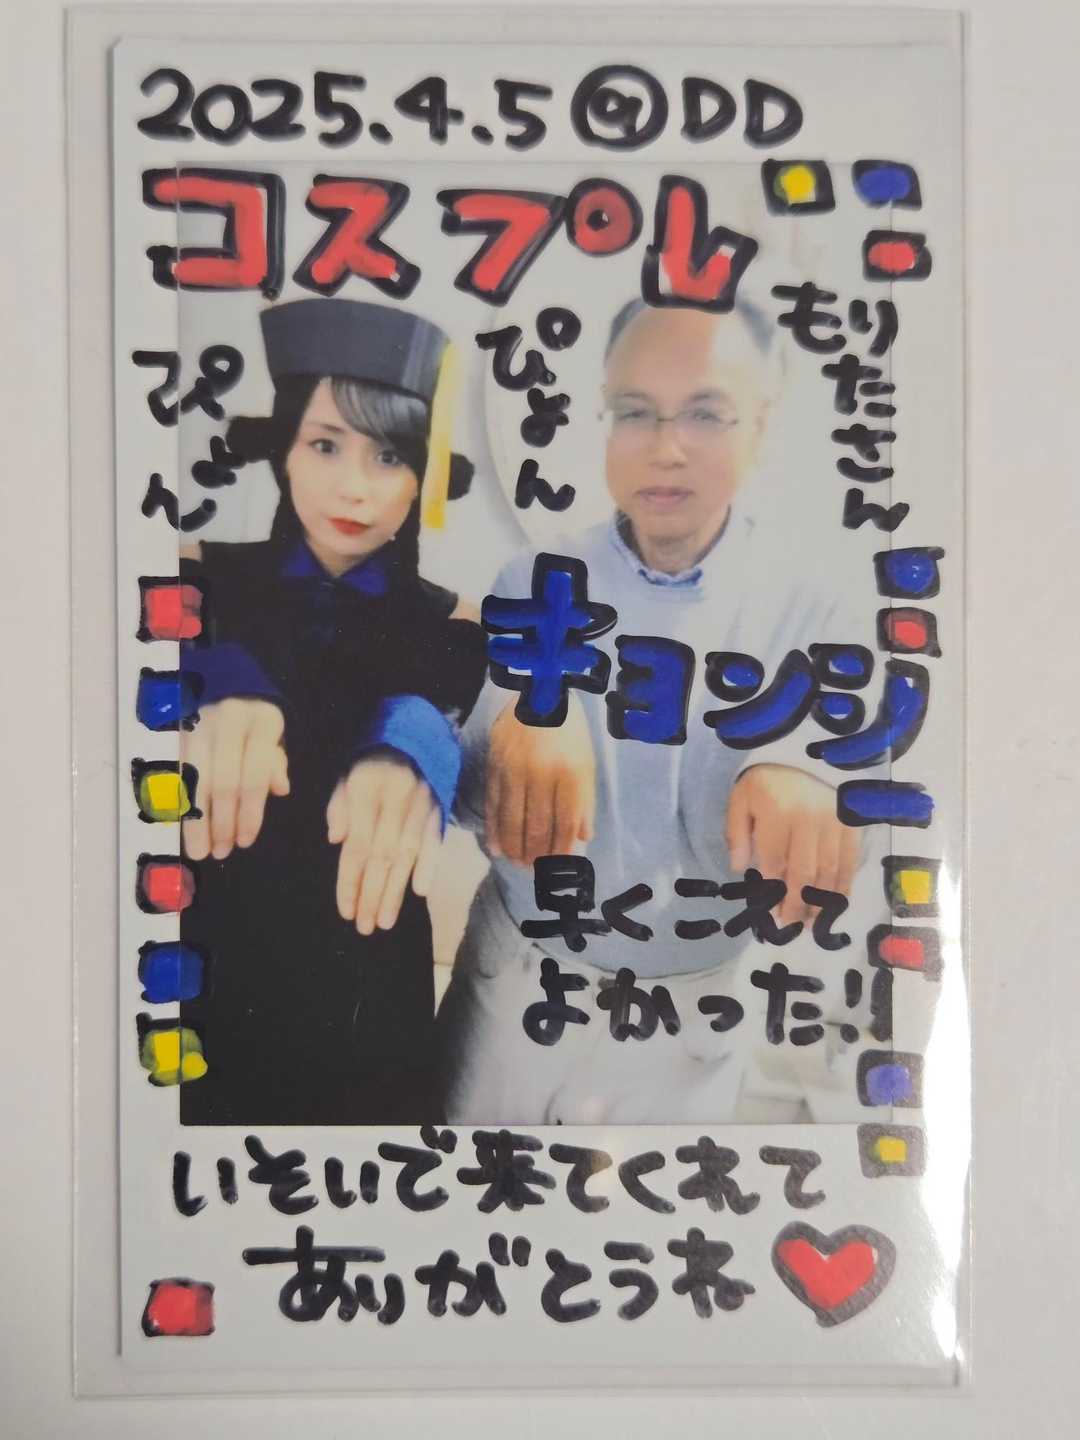 2025.4.5 @DD
コスプレ
もりたさん
ぴょん
ぴょん
キョンシー
早くこえて
よかった!!
いそいで来てくれて
ありがとうね